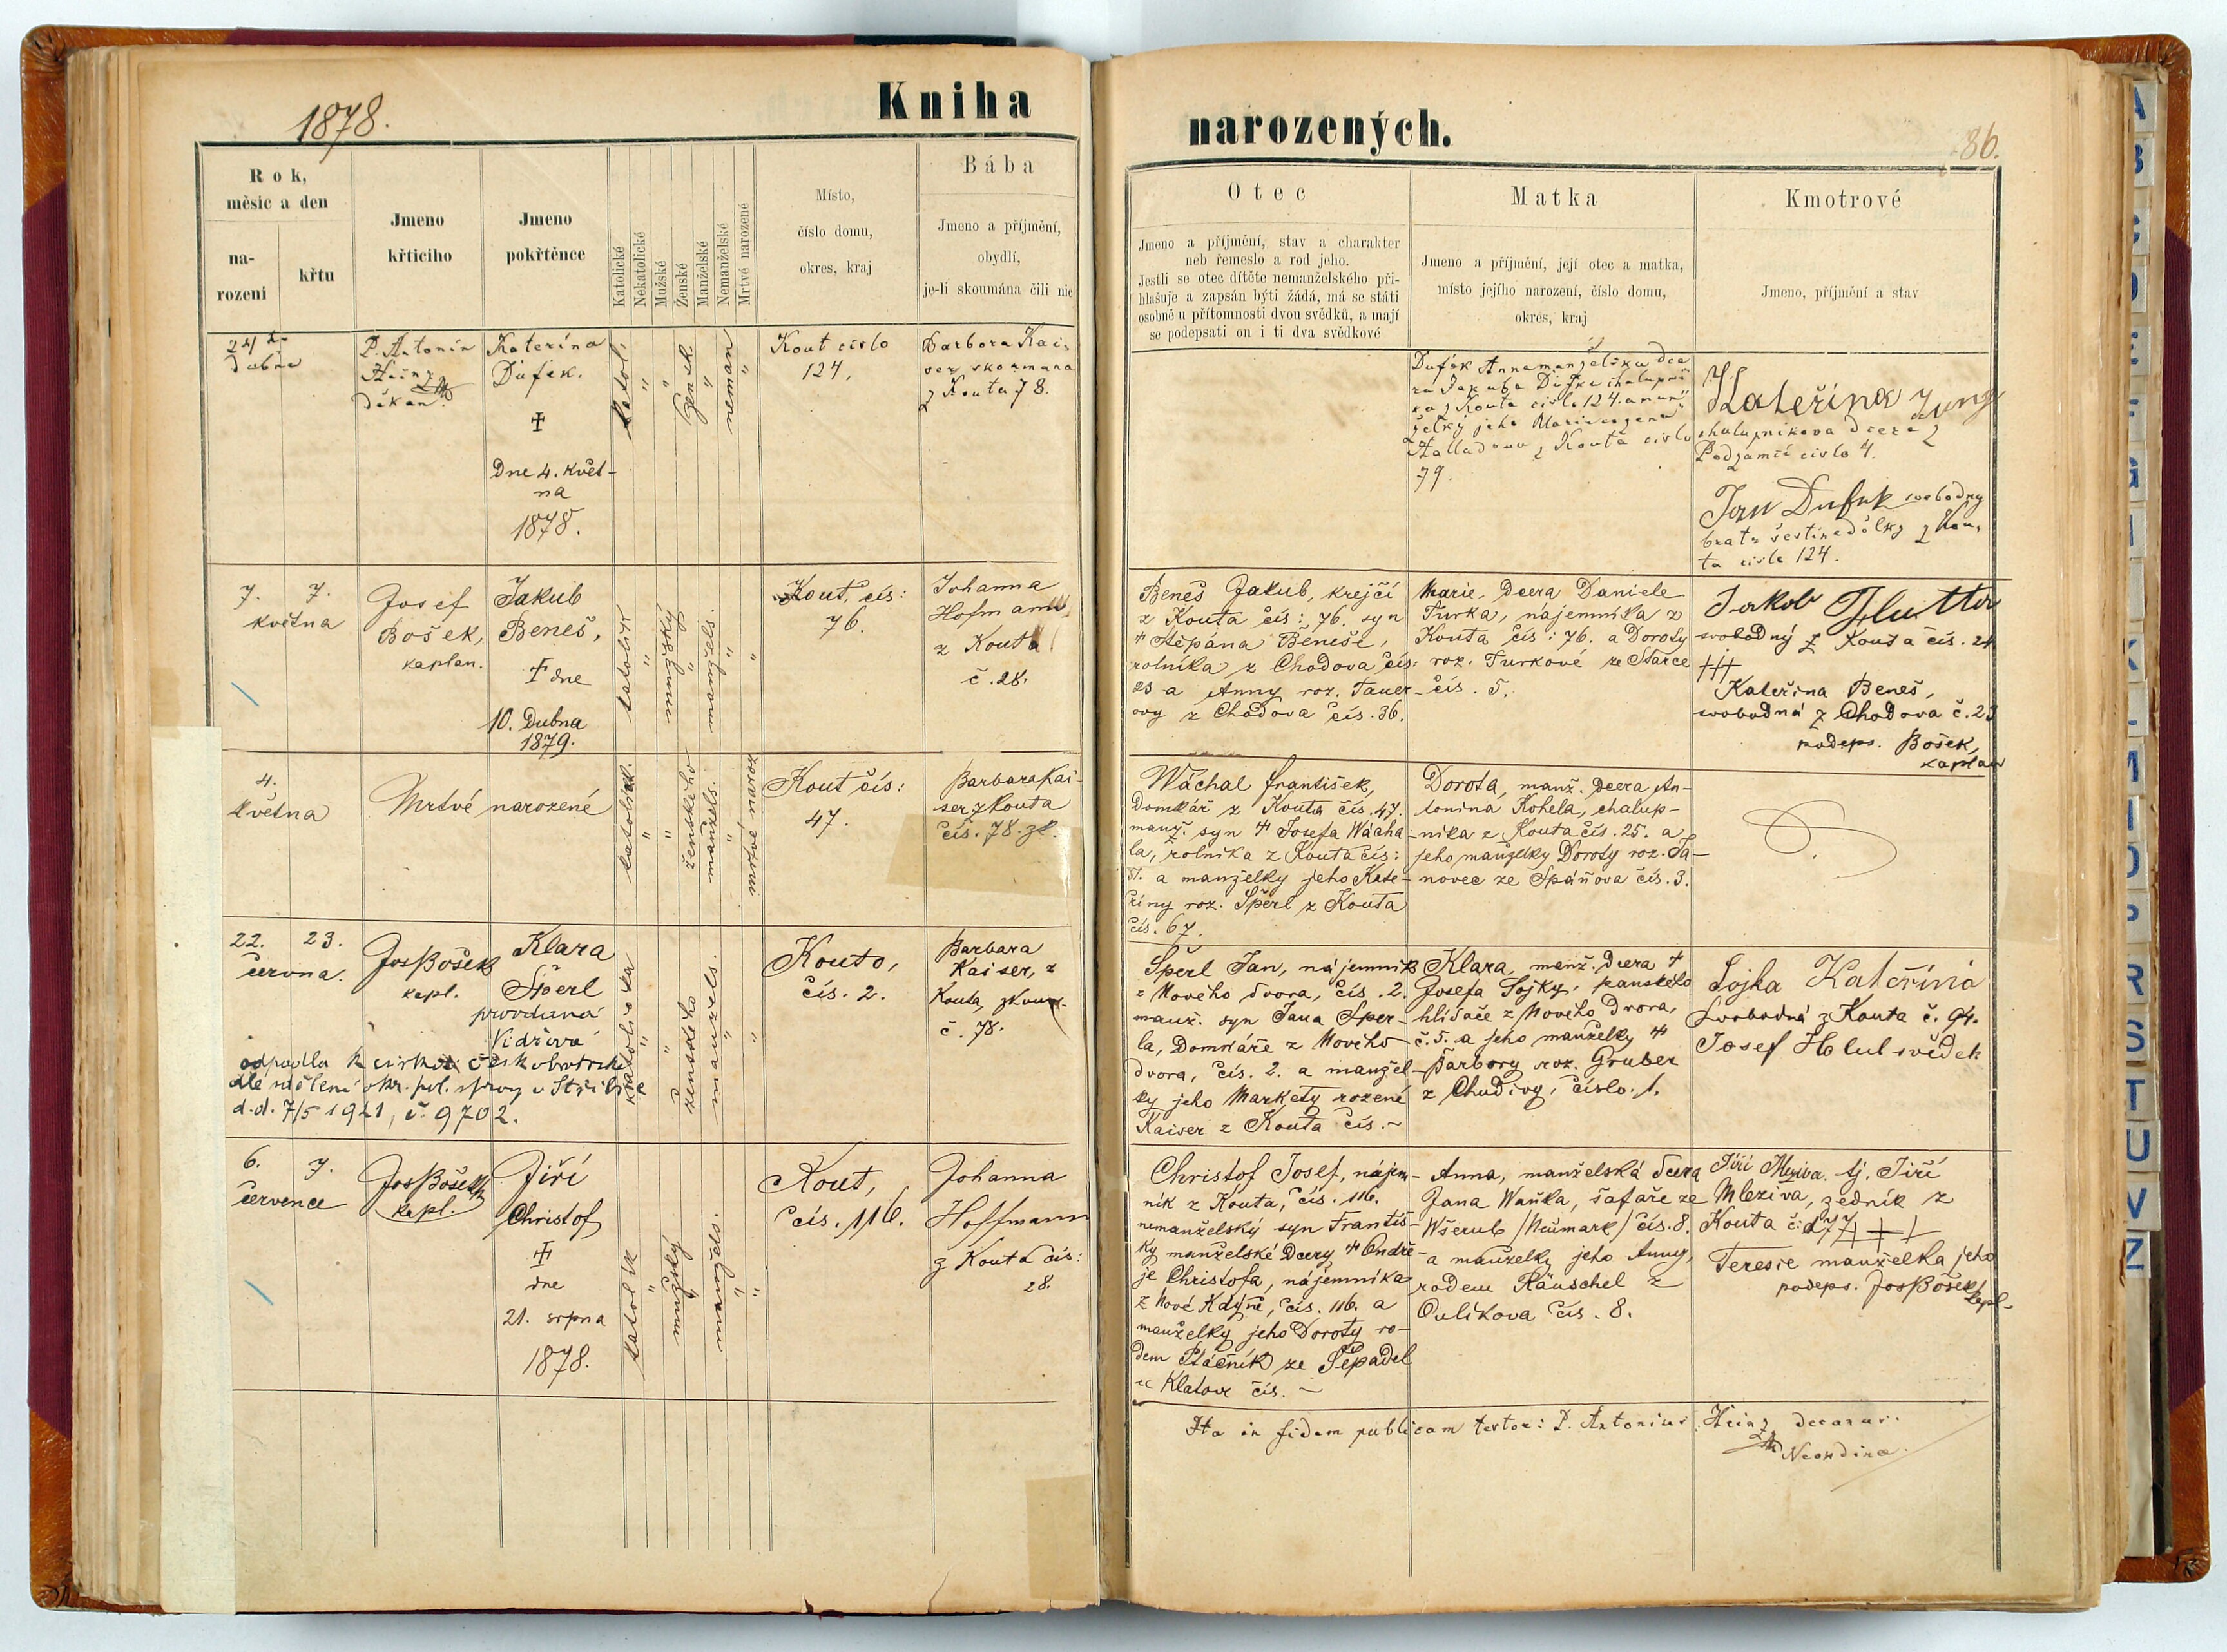 1878.
Kniha
narozených.
86.
Rok,
měsíc a den
na-
rozeni
křtu
Jmeno
křticího
Jmeno
pokřtěnce
Katolické
Nekatolické
Mužské
Ženské
Manželské
Nemanželské
Mrtvé narozené
Místo,
číslo domu,
okres, kraj
Bába
Jmeno a příjmění,
obydlí,
je-li skoumána čili nic
Otec
Jmeno a příjmění, stav a charakter
neb řemeslo a rod jeho.
Jestli se otec dítěte nemanželského při-
hlašuje a zapsán býti žádá, má se státi
osobně u přítomnosti dvou svědků, a mají
se podepsati on i ti dva svědkové
Matka
Jmeno a příjmění, její otec a matka,
místo jejího narození, číslo domu,
okres, kraj
Kmotrové
Jmeno, příjmění a stav
dubna
P. Antonín
Heinz
děkan.
Kateřina
Dufek.
Dne 4. květ-
na
1878.
katol.
žensk.
neman
Kout číslo
124.
Barbora Kai-
ser skoumana
z Kouta 78.
Dufek Anna manželska dce
ra Jakuba Dufka chalupni
ka z Kouta cislo 124. a man-
želky jeho Marie rozena
z Kouta cislo
79.
Kateřina Jung
chalupnikova dcera z
Podzamčí cislo 4.
Jan Dufek svobodny
bratr šestinedělky z Kou-
ta cislo 124.
7. 7.
května
Josef
Bošek,
kaplan.
Jakub
Beneš.
† dne
10. Dubna
1879.
katolík
mužský
manžels.
Kout, čís:
76.
Johanna
Hofmann
z Kouta
č. 28.
Beneš Jakub, krejčí
z Kouta čís: 76. syn
† Štěpána Beneše,
rolníka z Chodova čís:
23 a Anny roz. Tauer-
ovy z Chodova čís. 36.
Marie, Dcera Daniele
Turka, nájemníka z
Kouta čís: 76. a Doroty
roz. Turkové ze Starce
čís. 5.
Jakob
svobodný z Kouta čís. 24
+++
Kateřina Beneš,
svobodná z Chodova č. 23
podeps. Bošek,
kaplan
4.
května
Mrtvé narozené
katolick.
ženského
manžels.
mrtvé naroz
Kout čís:
47.
Barbara Kai-
ser z Kouta
čís. 78. zk.
Wáchal František,
Domkář z Kouta čís. 47.
manž. syn † Josefa Wácha-
la, rolníka z Kouta čís:
51. a manželky jeho Kate-
řiny roz. Šperl z Kouta
čís. 67.
Dorota, manž. Dcera An-
tonína Kohela, chalup-
níka z Kouta čís. 25. a
jeho manželky Doroty roz. Ja-
novec ze Spáňova čís. 3.
22. 23.
června.
Jos Bošek
kapl.
Klara
Šperl
provdaná
Vidřová
odpadla k církvi českobratrské
dle sdělení okr. pol. správy v Stříbře
d.d. 7/5 1921, č. 9702.
katolička
ženského
manžels.
Kouto,
čís. 2.
Barbara
Kaiser, z
Kouta, zkoum-
č. 78.
Šperl Jan, nájemník
z Nového dvora, čís. 2.
manž. syn Jana Sper-
la, Domkáře z Nového
dvora, čís. 2. a manžel-
ky jeho Markety rozené
Kaiser z Kouta čís. ~
Klara, manž. Dcera †
Josefa Sojky, panského
hlídače z Nového Dvora,
č. 5. a jeho manželky †
Barbory roz. Gruber
z Chudivy, číslo. 1.
Sojka Kateřina
Svobodná z Kouta č. 94.
Josef Holub svědek
6. 7.
července
Jos Bošek
kapl.
Jiří
Christof
†
dne
21. srpna
1878.
katolík
mužský
manžels.
Kout,
čís. 116.
Johanna
Hoffmann
z Kouta čís:
28.
Christof Josef, nájem-
ník z Kouta, čís. 116.
nemanželský syn Františ-
ky manželské Dcery † Ondře-
je Christofa, nájemníka
z Nové Kdyně, čís. 116. a
manželky jeho Doroty ro-
dem Ptáčník ze Šepadel
u Klatov čís. ~
Anna, manželská Dcera
Jana Waňka, šafaře ze
Wšerub /Neumark/ čís. 8.
a manželky jeho Anny,
rodem Räuschel z
Oulikova čís. 8.
Jiří Mleziva. tj. Jiří
Mleziva, zedník z
Kouta č:
+++
Teresie manželka jeho
podeps. Jos Bošek
kapl.
Ita in fidem publicam testor: P. Antonius Heinz decanus.
Neokdinae.
A
B
C
D
E
F
G
I
K
L
M
O
P
R
S
T
U
V
Z